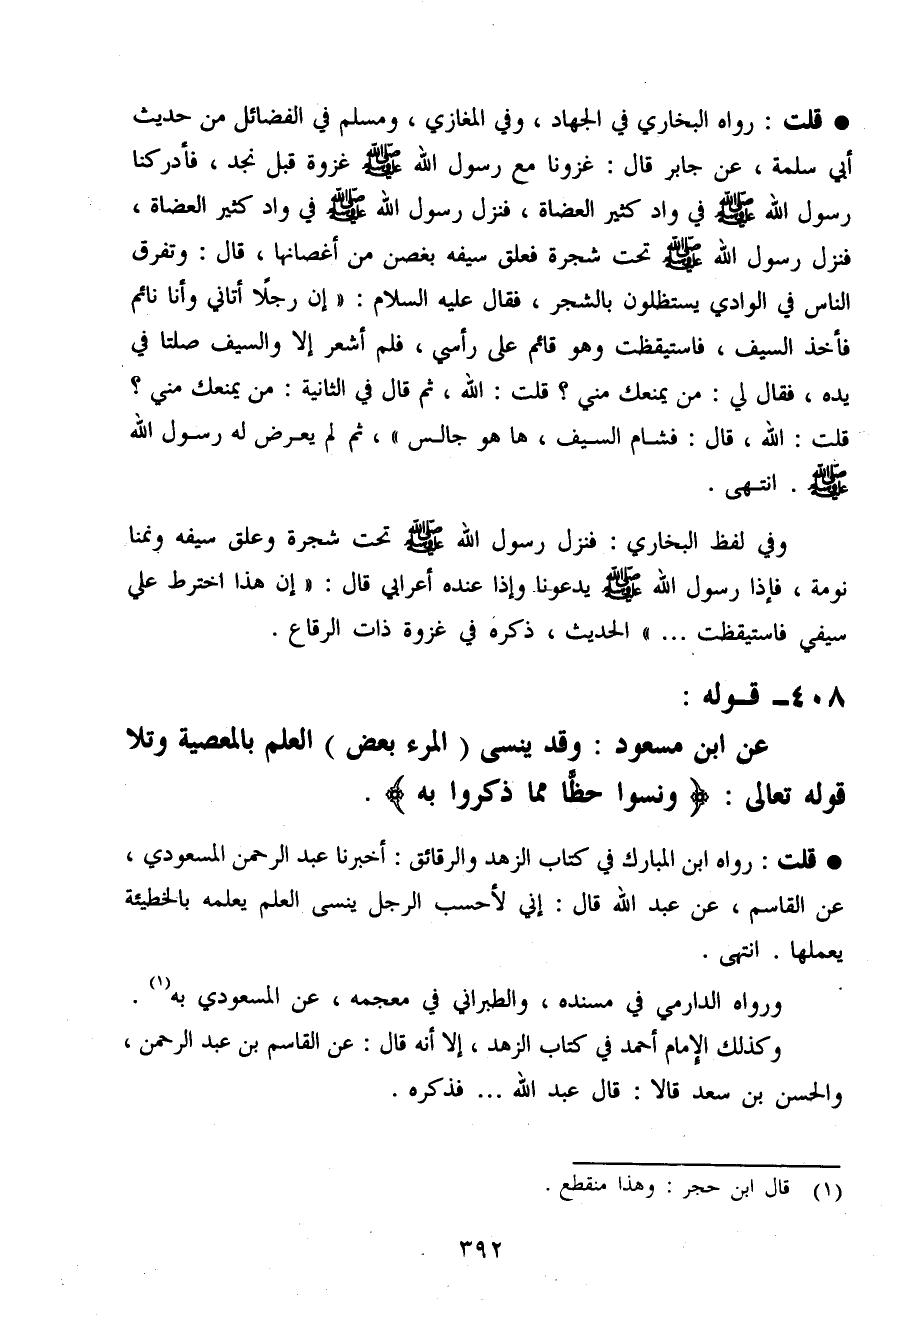 ● قلت : رواه البخاري في الجهاد ، وفي المغازي ، ومسلم في الفضائل من حديث
أبي سلمة ، عن جابر قال : غزونا مع رسول الله ﷺ غزوة قبل نجد ، فأدركنا
رسول الله ﷺ في واد كثير العضاة ، فنزل رسول الله ﷺ في واد كثير العضاة ،
فنزل رسول الله ﷺ تحت شجرة فعلق سيفه بغصن من أغصانها ، قال : وتفرق
الناس في الوادي يستظلون بالشجر ، فقال عليه السلام : « إن رجلًا أتاني وأنا نائم
فأخذ السيف ، فاستيقظت وهو قائم على رأسي ، فلم أشعر إلا والسيف صلتا في
يده ، فقال لي : من يمنعك مني ؟ قلت : الله ، ثم قال في الثانية : من يمنعك مني ؟
قلت : الله ، قال : فشام السيف ، ها هو جالس » ، ثم لم يعرض له رسول الله
ﷺ . انتهى .
وفي لفظ البخاري : فنزل رسول الله ﷺ تحت شجرة وعلق سيفه ونمنا
نومة ، فإذا رسول الله ﷺ يدعونا وإذا عنده أعرابي قال : « إن هذا اخترط علي
سيفي فاستيقظت ... » الحديث ، ذكره في غزوة ذات الرقاع .
٤٠٨ـ قـوله :
عن ابن مسعود : وقد ينسى ( المرء بعض ) العلم بالمعصية وتلا
قوله تعالى : ﴿ ونسوا حظًّا مما ذكروا به ﴾ .
● قلت : رواه ابن المبارك في كتاب الزهد والرقائق : أخبرنا عبد الرحمن المسعودي ،
عن القاسم ، عن عبد الله قال : إني لأحسب الرجل ينسى العلم يعلمه بالخطيئة
يعملها . انتهى .
ورواه الدارمي في مسنده ، والطبراني في معجمه ، عن المسعودي به(١) .
وكذلك الإمام أحمد في كتاب الزهد ، إلا أنه قال : عن القاسم بن عبد الرحمن ،
والحسن بن سعد قالا : قال عبد الله ... فذكره .
(١) قال ابن حجر : وهذا منقطع .
٣٩٢